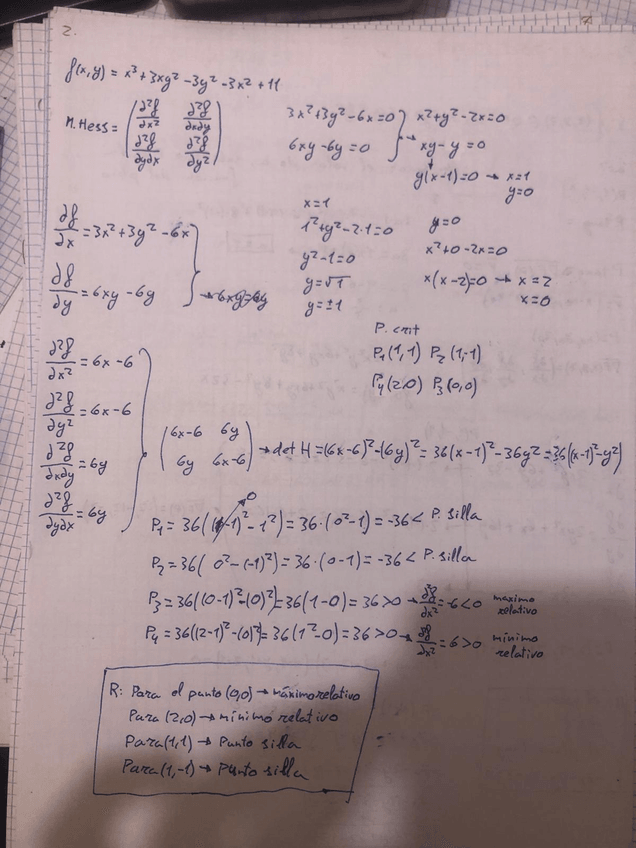 2.
f(x,y) = x³ + 3xy² - 3y² - 3x² + 11
M.Hess = (∂²f/∂x² ∂²f/∂x∂y
∂²f/∂y∂x ∂²f/∂y²)
3x² + 3y² - 6x = 0 } x² + y² - 2x = 0
6xy - 6y = 0 → xy - y = 0
↓
y(x-1) = 0 → x = 1
y = 0
∂f/∂x = 3x² + 3y² - 6x
∂f/∂y = 6xy - 6y } →
x = 1
1² + y² - 2·1 = 0
y² - 1 = 0
y = √1
y = ±1
y = 0
x² + 0 - 2x = 0
x(x-2) = 0 → x = 2
x = 0
P. crit
P₁(1,1) P₂(1,-1)
P₄(2,0) P₃(0,0)
∂²f/∂x² = 6x - 6
∂²f/∂y² = 6x - 6
∂²f/∂x∂y = 6y
∂²f/∂y∂x = 6y
(6x-6 6y
6y 6x-6) → det H = (6x-6)² - (6y)² = 36(x-1)² - 36y² = 36((x-1)² - y²)
P₁ = 36((1-1)² - 1²) = 36·(0² - 1) = -36 < P. silla
0
P₂ = 36(0² - (-1)²) = 36·(0-1) = -36 < P. silla
P₃ = 36((0-1)² - (0)²) = 36(1-0) = 36 > 0 → ∂²f/∂x² = -6 < 0 maximo relativo
P₄ = 36((2-1)² - (0)²) = 36(1² - 0) = 36 > 0 → ∂²f/∂x² = 6 > 0 mínimo relativo
R: Para el punto (0,0) → máximo relativo
Para (2,0) → mínimo relativo
Para (1,1) → Punto silla
Para (1,-1) → Punto silla